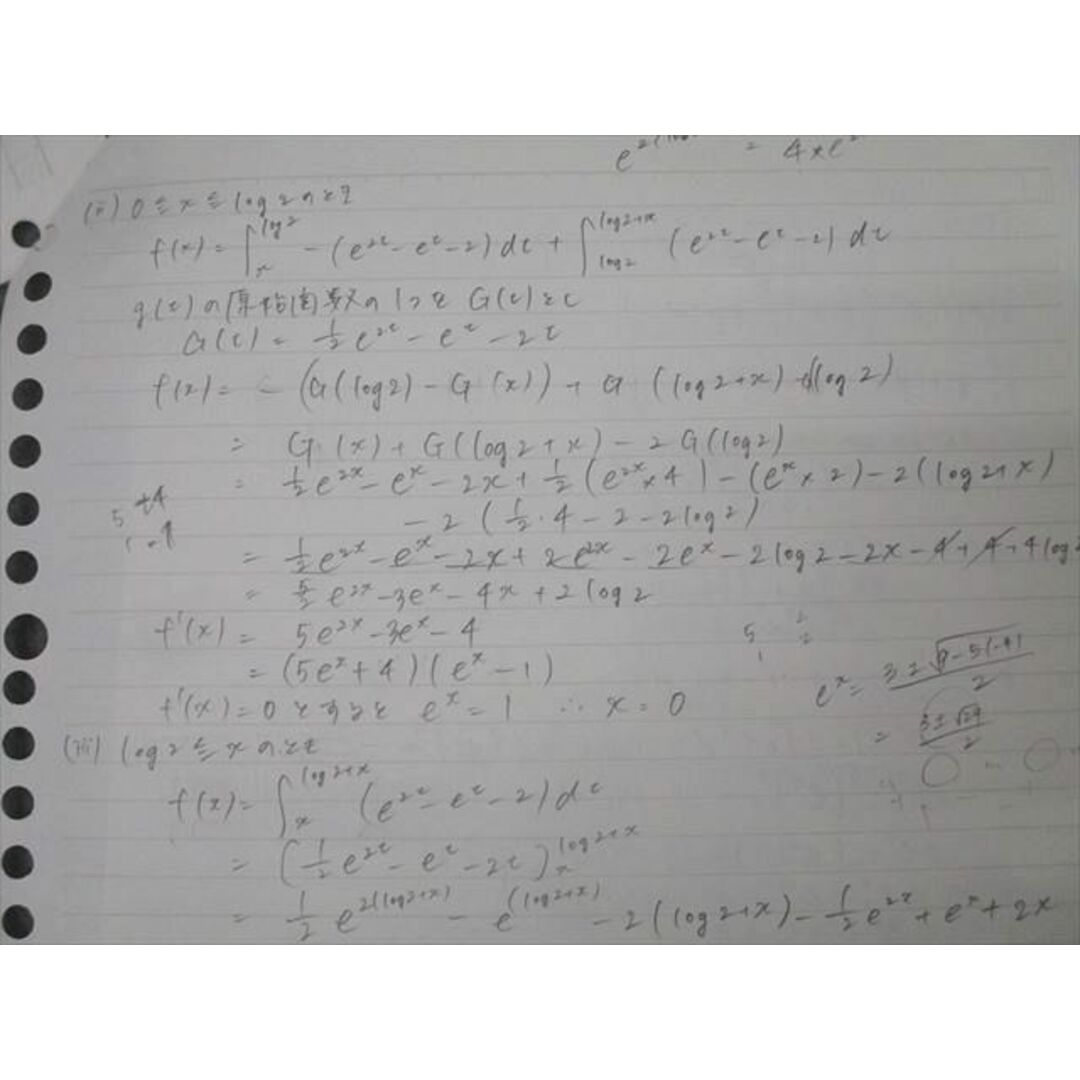 e^{2(log = 4×e
(ii) 0≦x≦log2のとき
f(x)=∫_x^{log2} -(e^{2t}-e^t-2)dt+∫_{log2}^{log2+x} (e^{2t}-e^t-2)dt
g(t)の原始関数の1つをG(t)とし
G(t)=½e^{2t}-e^t-2t
f(x)= -(G(log2)-G(x))+G(log2+x) (log2)
= G(x)+G(log2+x)-2G(log2)
= ½e^{2x}-e^x-2x+½(e^{2x}×4)-(e^x×2)-2(log2+x)
-2(½·4-2-2log2)
= ½e^{2x}-e^x-2x+2e^{2x}-2e^x-2log2-2x-4+4+4log2
= 5/2 e^{2x}-3e^x-4x+2log2
f'(x)= 5e^{2x}-3e^x-4
= (5e^x+4)(e^x-1)
f'(x)=0とすると e^x=1 ∴x=0
5 +4
1 -1
5
1
e^x= 3±√9-5(-4) / 2
= 3±√29 / 2
(iii) log2≦xのとき
f(x)=∫_x^{log2+x} (e^{2t}-e^t-2)dt
= [½e^{2t}-e^t-2t]_x^{log2+x}
= ½e^{2(log2+x)}-e^{(log2+x)}-2(log2+x)-½e^{2x}+e^x+2x